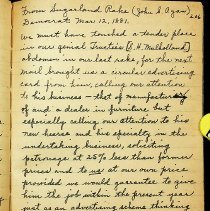 From Sugarland Rake (John S Ryan)
Democrat Mar 12, 1881. 206
We must have touched a tender place
in our genial Trustees (A.H. Mulholland)
abdomen in our last rake, for the next
mail brought us a circular advertising
card from him, calling our attention
to his business - that of manufacturer
of and a dealer in furniture but
especially calling our attention to his
new hearse and his specialty in the
undertaking business, soliciting
patronage at 25% less than former
prices and to us at our own price
provided we would guarantee to give
him the job within the present year
just as an advertising scheme thinking